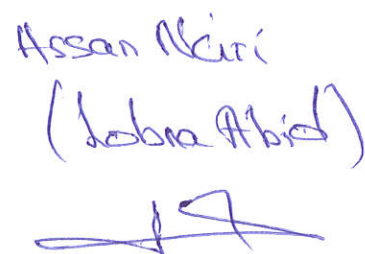 Assan Nciri
(Lobna Abid)